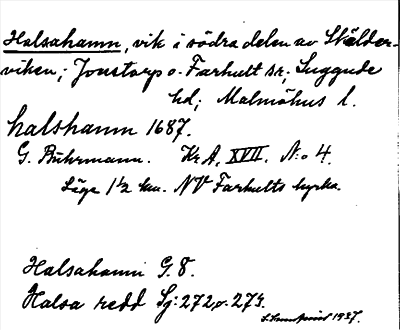 Halsahamn, vik i södra delen av Skälder-
viken; Jonstorp o. Farhult sr; Luggude
hd; Malmöhus l.
halshamn 1687.
G. Buhrmann. Kr. A. XVII. N:o 4.
Läge 1½ km. NV Farhults kyrka.
Halsahamn G.8.
Halsa redd Sj: 272 o. 274.
1937.